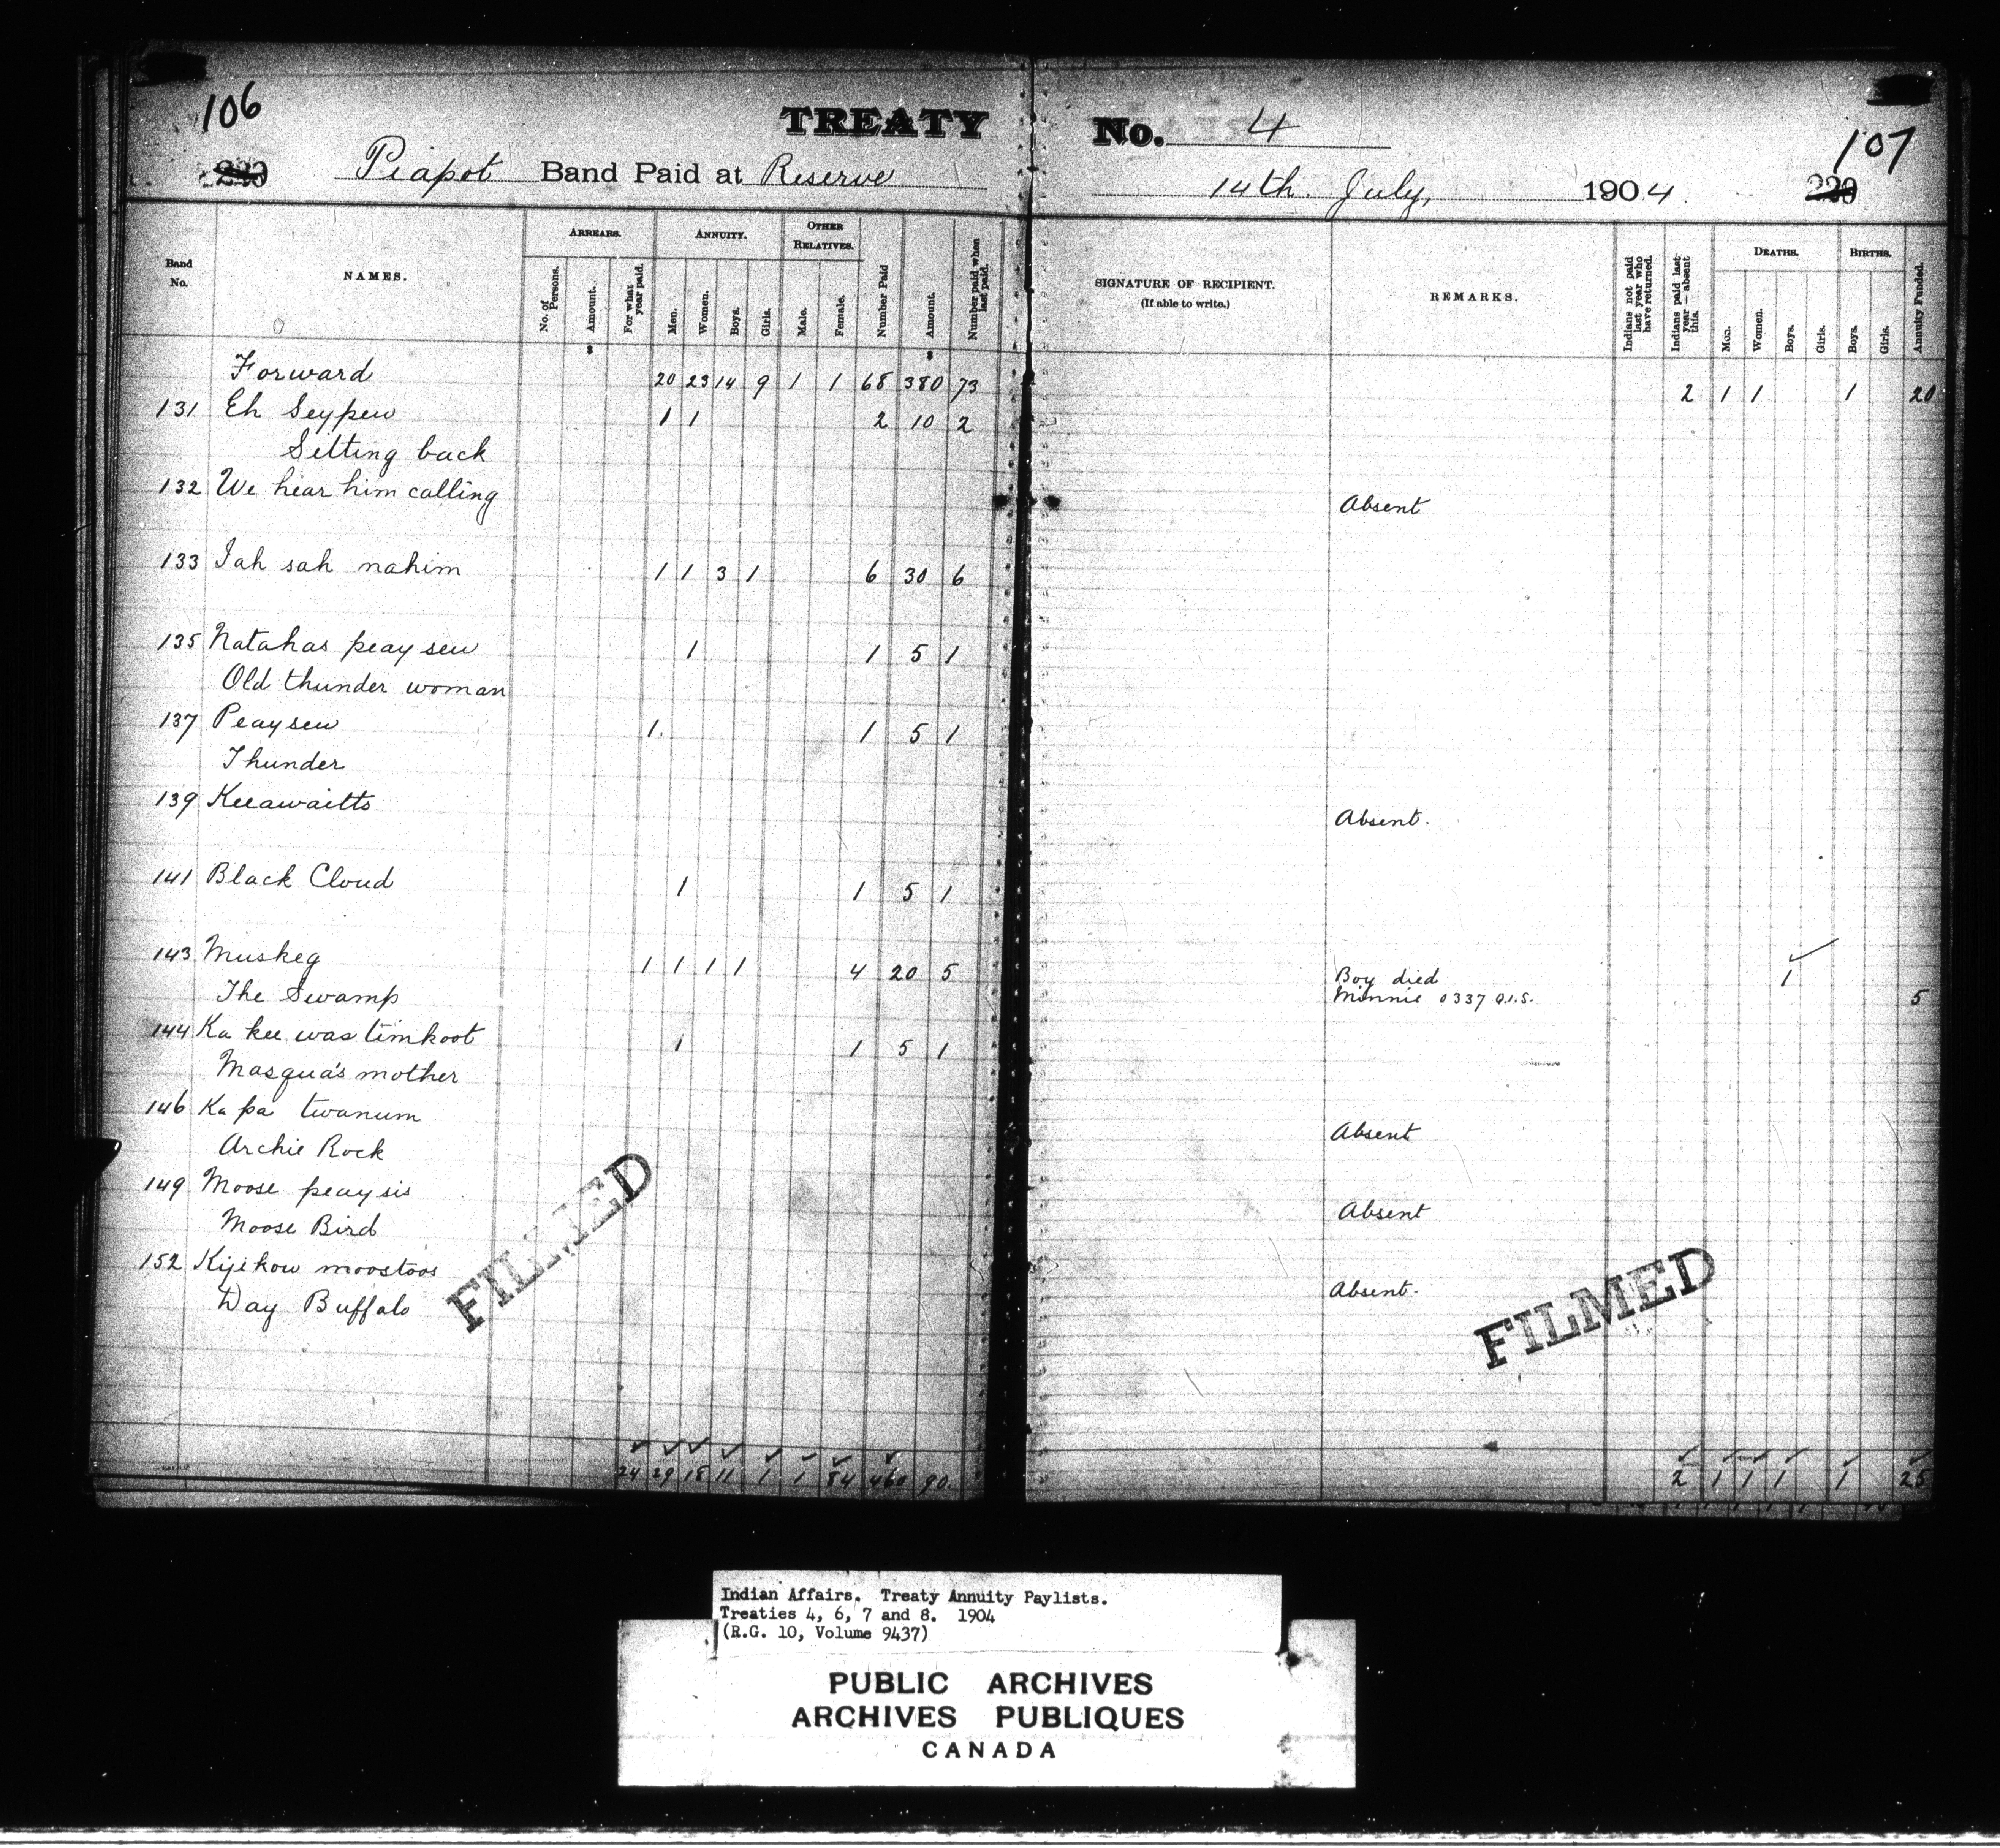 106
TREATY No. 4
107
Piapot Band Paid at Reserve
14th. July, 1904
Band No.
NAMES.
ARREARS.
No. of Persons.
Amount.
For what year paid.
ANNUITY.
Men.
Women.
Boys.
Girls.
OTHER RELATIVES.
Male.
Female.
Number Paid
Amount.
Number paid when last paid.
SIGNATURE OF RECIPIENT.
(If able to write.)
REMARKS.
Indians not paid last year who have returned.
Indians paid last year — absent this.
DEATHS.
Men.
Women.
Boys.
Girls.
BIRTHS.
Boys.
Girls.
Annuity Funded.
$ $
Forward 20 23 14 9 1 1 68 380 73 2 1 1 1 20
131 Eh Seypew 1 1 2 10 2
Sitting back
132 We hear him calling Absent
133 Iah sah nahim 1 1 3 1 6 30 6
135 Natahas peay sew 1 1 5 1
Old thunder woman
137 Peaysew 1 1 5 1
Thunder
139 Keeawaitts Absent.
141 Black Cloud 1 1 5 1
143 Muskeg 1 1 1 1 4 20 5 Boy died 1
The Swamp Minnie 0337 Q.I.S. 5
144 Ka kee was timkoot 1 1 5 1
Masqua's mother
146 Ka pa twanum Absent
Archie Rock
149 Moose peaysis Absent
Moose Bird
152 Kijikow moostoos Absent.
Day Buffalo
FILMED
FILMED
24 29 18 11 1 1 84 460 90. 2 1 1 1 1 25
Indian Affairs. Treaty Annuity Paylists.
Treaties 4, 6, 7 and 8. 1904
(R.G. 10, Volume 9437)
PUBLIC ARCHIVES
ARCHIVES PUBLIQUES
CANADA